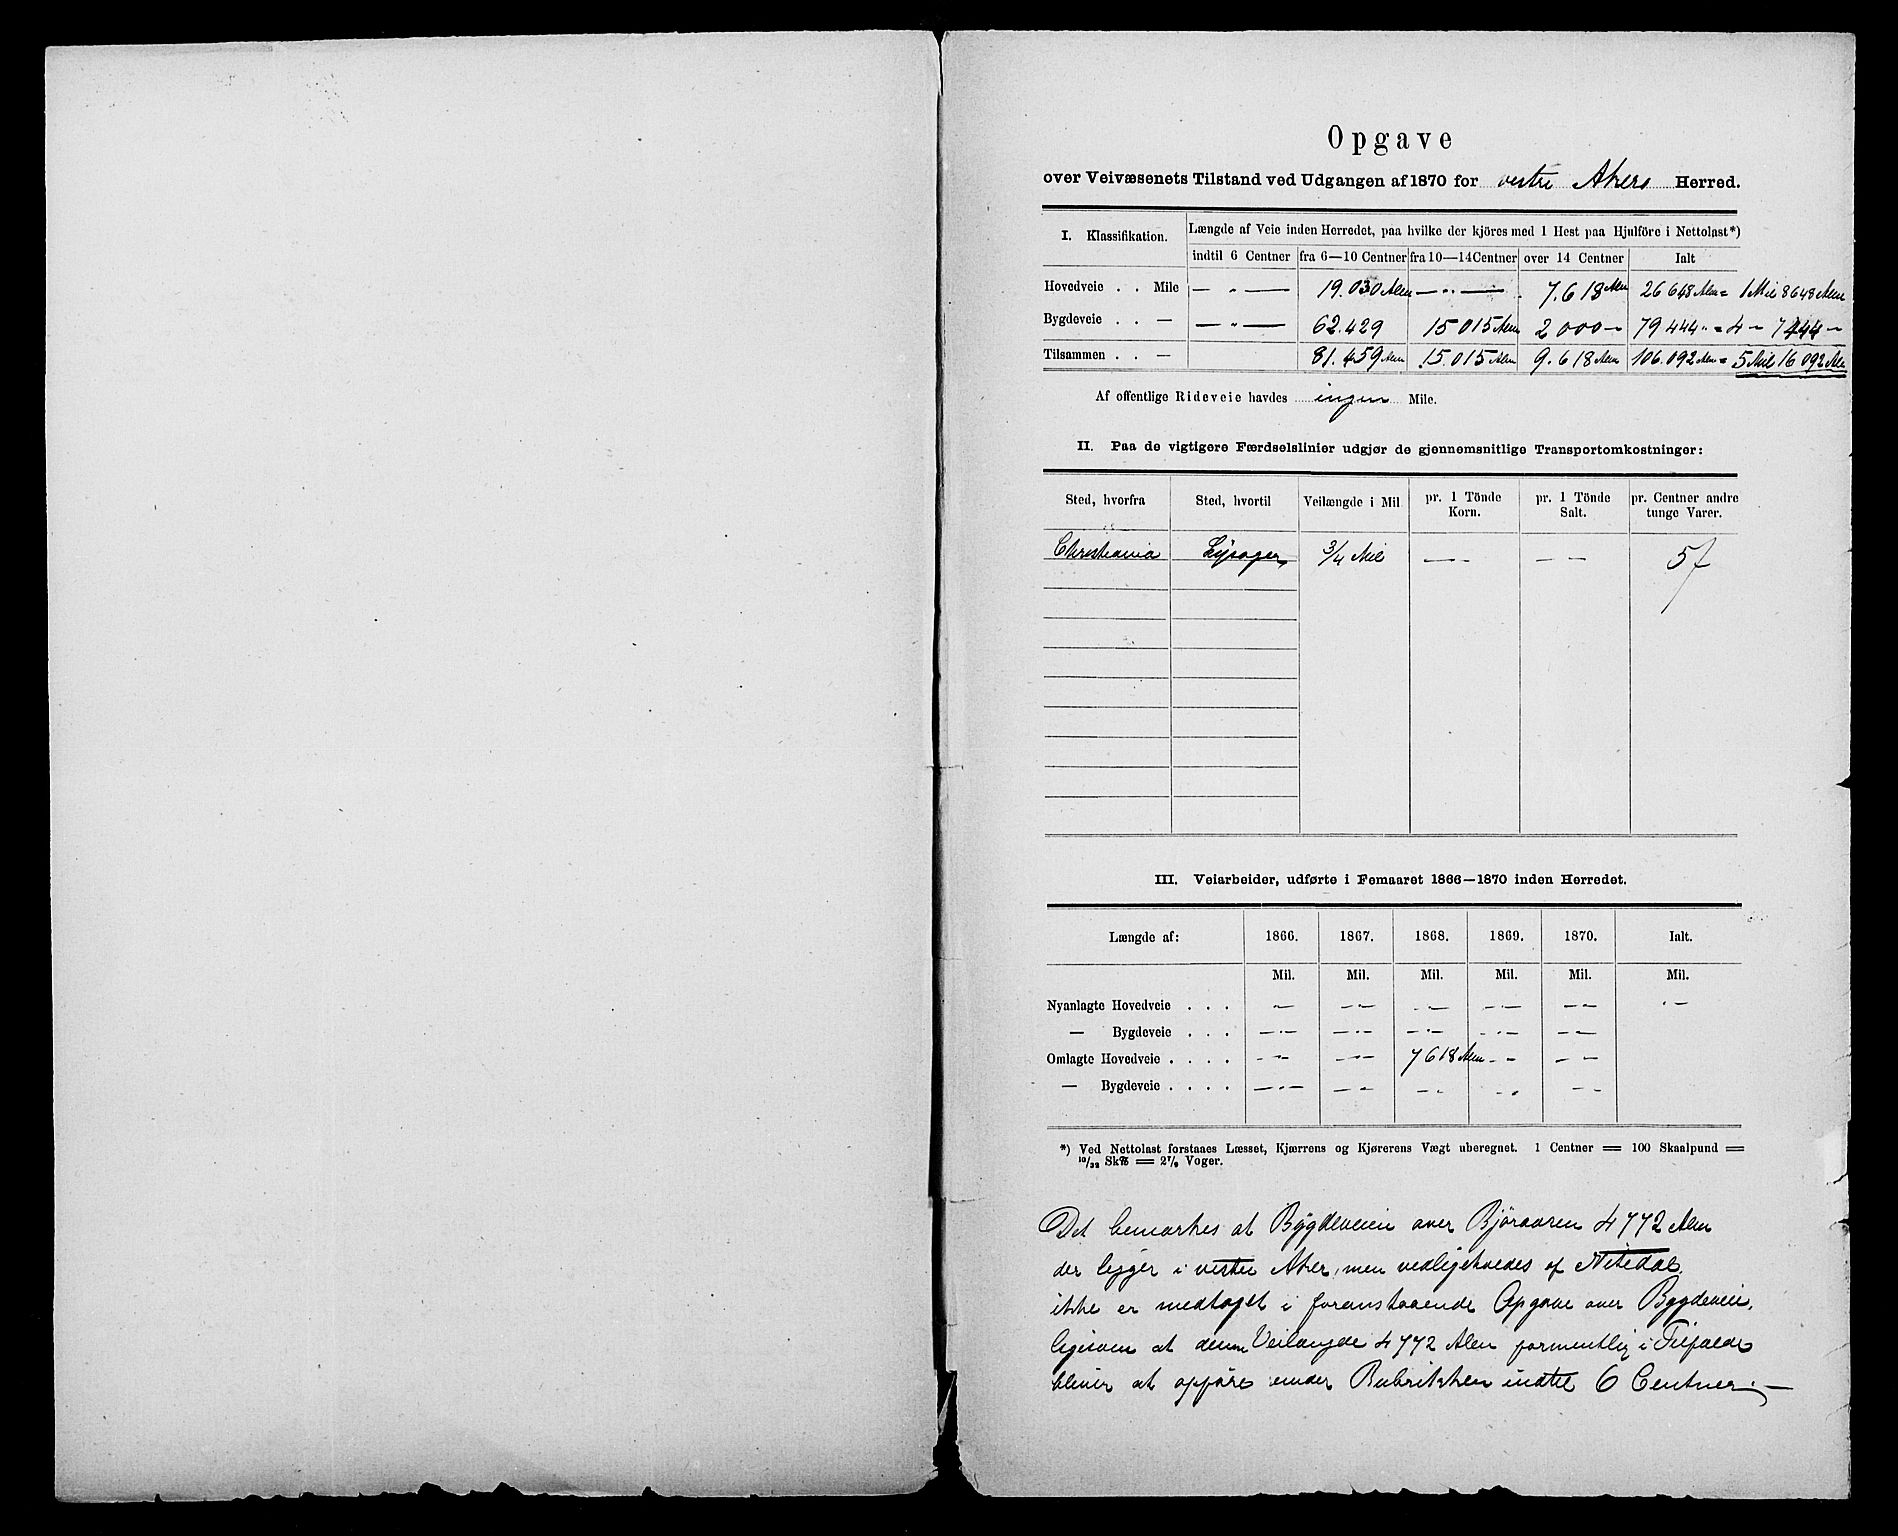 Opgave
over Veivæsenets Tilstand ved Udgangen af 1870 for vestre Akers Herred.
I. Klassifikation. Længde af Veie inden Herredet, paa hvilke der kjöres med 1 Hest paa Hjulföre i Nettolast*)
indtil 6 Centner fra 6—10 Centner fra 10—14 Centner over 14 Centner Ialt
Hovedveie . . Mile — „ — 19.030 Alen — „ — 7.618 Alen 26648 Alen = 1 Mil 8648 Alen
Bygdeveie . . — — „ — 62.429 15015 Alen 2000 — 79444 „ = 4 — 7444 —
Tilsammen . . — 81.459 Alen 15.015 Alen 9.618 Alen 106.092 Alen = 5 Mil 16092 Alen
Af offentlige Rideveie havdes ingen Mile.
II. Paa de vigtigere Færdselslinier udgjør de gjennemsnitlige Transportomkostninger:
Sted, hvorfra Sted, hvortil Veilængde i Mil pr. 1 Tönde Korn. pr. 1 Tönde Salt. pr. Centner andre tunge Varer.
Christiania Lysager 3/4 Mil — — — — 5
III. Veiarbeider, udførte i Femaaret 1866—1870 inden Herredet.
Længde af: 1866. 1867. 1868. 1869. 1870. Ialt.
Mil. Mil. Mil. Mil. Mil. Mil.
Nyanlagte Hovedveie . . .
— Bygdeveie . . .
Omlagte Hovedveie . . . . 7618 Alen
— Bygdeveie . . . .
*) Ved Nettolast forstaaes Læsset, Kjærrens og Kjørerens Vægt uberegnet. 1 Centner = 100 Skaalpund =
10/32 Sk℔ = 2 7/9 Voger.
Det bemærkes at Bygdeveien over Björaaren 4772 Alen
der ligger i vestre Aker, men vedligeholdes af Nitedal
ikke er medtaget i foranstaaende Opgave over Bygdeveie,
ligesom at denne Veilængde 4772 Alen formentlig i Tilfælde
bliver at opföre under Rubrikken indtil 6 Centner. —